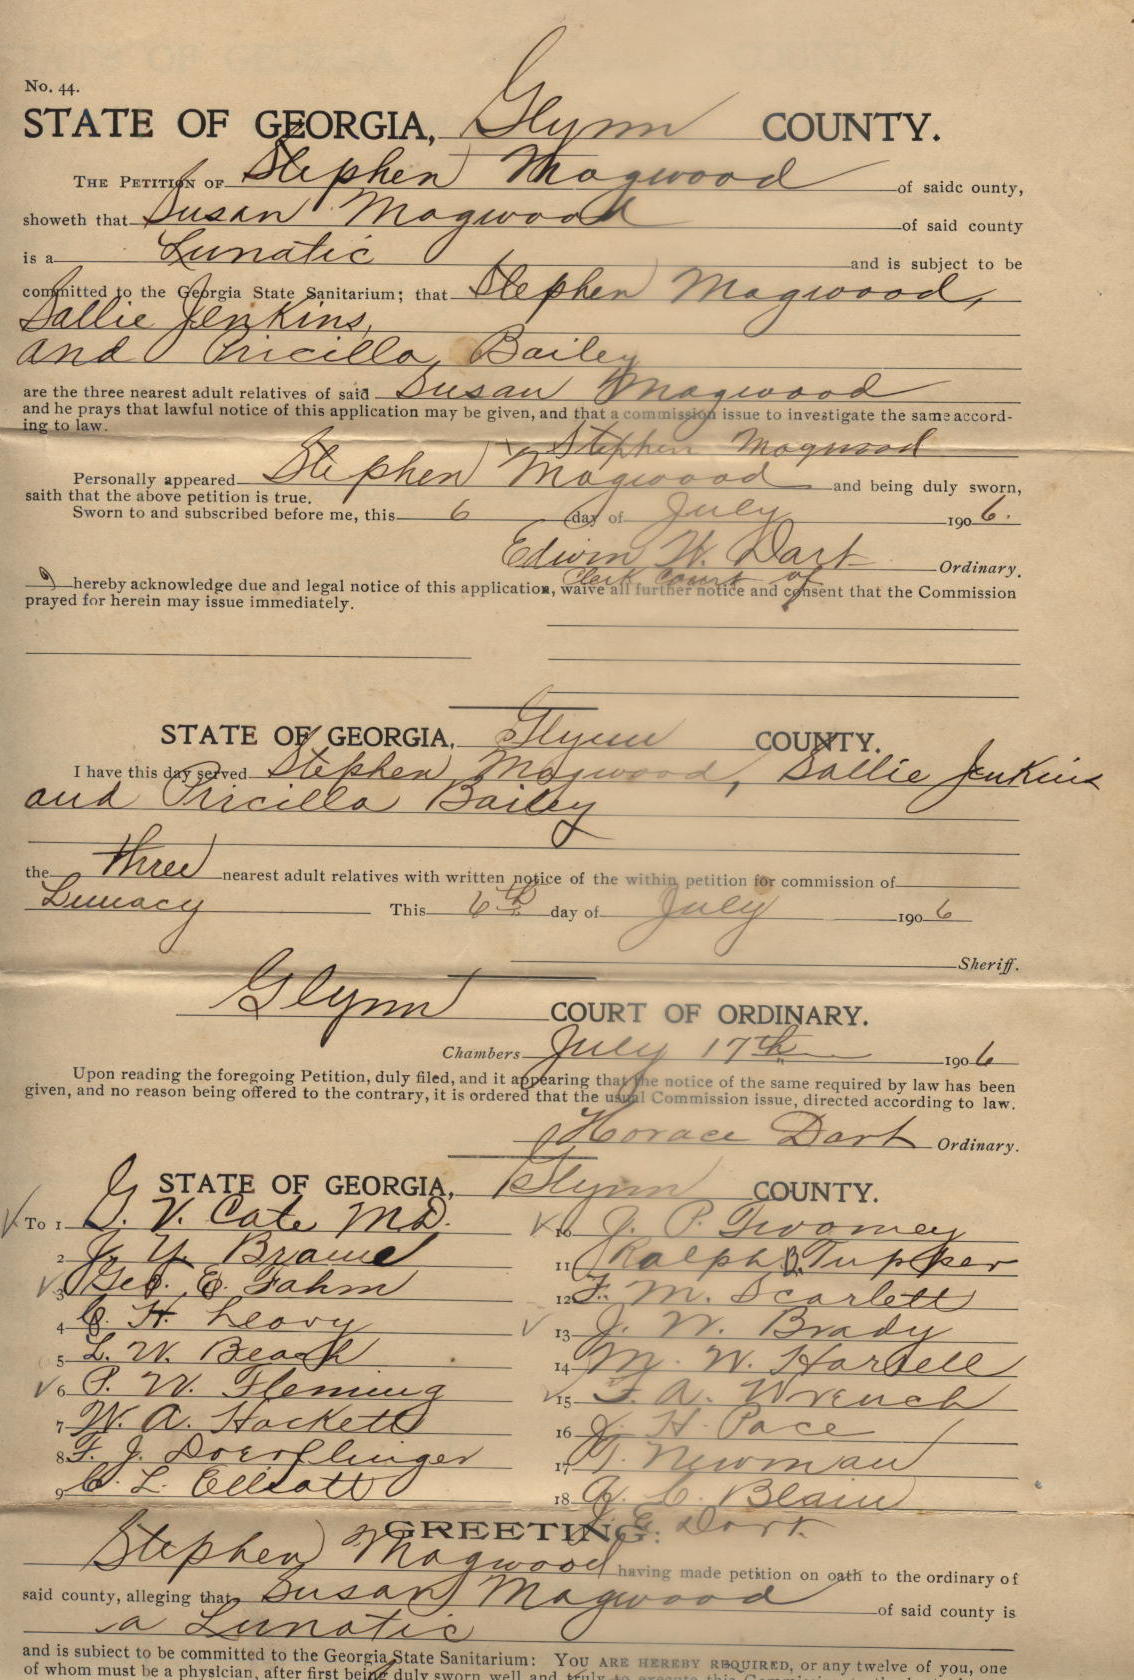 No. 44.
STATE OF GEORGIA, Glynn COUNTY.
THE PETITION OF Stephen Magwood of saidc ounty,
showeth that Susan Magwood of said county
is a Lunatic and is subject to be
committed to the Georgia State Sanitarium; that Stephen Magwood,
Sallie Jenkins,
and Pricilla Bailey
are the three nearest adult relatives of said Susan Magwood
and he prays that lawful notice of this application may be given, and that a commission issue to investigate the same accord-
ing to law.
Stephen Magwood
Personally appeared Stephen Magwood and being duly sworn,
saith that the above petition is true.
Sworn to and subscribed before me, this 6 day of July 1906.
Edwin W. Dart Ordinary.
Clerk Court of
hereby acknowledge due and legal notice of this application, waive all further notice and consent that the Commission
prayed for herein may issue immediately.
STATE OF GEORGIA, Glynn COUNTY.
I have this day served Stephen Magwood, Sallie Jenkins
and Pricilla Bailey
the three nearest adult relatives with written notice of the within petition for commission of
Lunacy This 6th day of July 1906
Sheriff.
Glynn COURT OF ORDINARY.
Chambers July 17th 1906
Upon reading the foregoing Petition, duly filed, and it appearing that the notice of the same required by law has been
given, and no reason being offered to the contrary, it is ordered that the usual Commission issue, directed according to law.
Horace Dart Ordinary.
STATE OF GEORGIA, Glynn COUNTY.
To 1 G. V. Cate M.D.
2 J. Y.
3 Geo. E. Fahm
4 C. H. Leavy
5 L. W. Beach
6 P. W. Fleming
7 W. A. Hackett
8 F. J. Doerflinger
9 C. L. Elliott
10 J. P. Twomey
11 Ralph B. Tupper
12 F. M. Scarlett
13 J. W. Brady
14 M. W. Harvell
15 F. A. Wrench
16 J. H. Pace
17 T. Newman
18 A. C. Blain
J. E. Dart
GREETING:
Stephen Magwood having made petition on oath to the ordinary of
said county, alleging that Susan Magwood of said county is
a Lunatic
and is subject to be committed to the Georgia State Sanitarium: YOU ARE HEREBY REQUIRED, or any twelve of you, one
of whom must be a physician, after first being duly sworn well and truly to execute this Commission